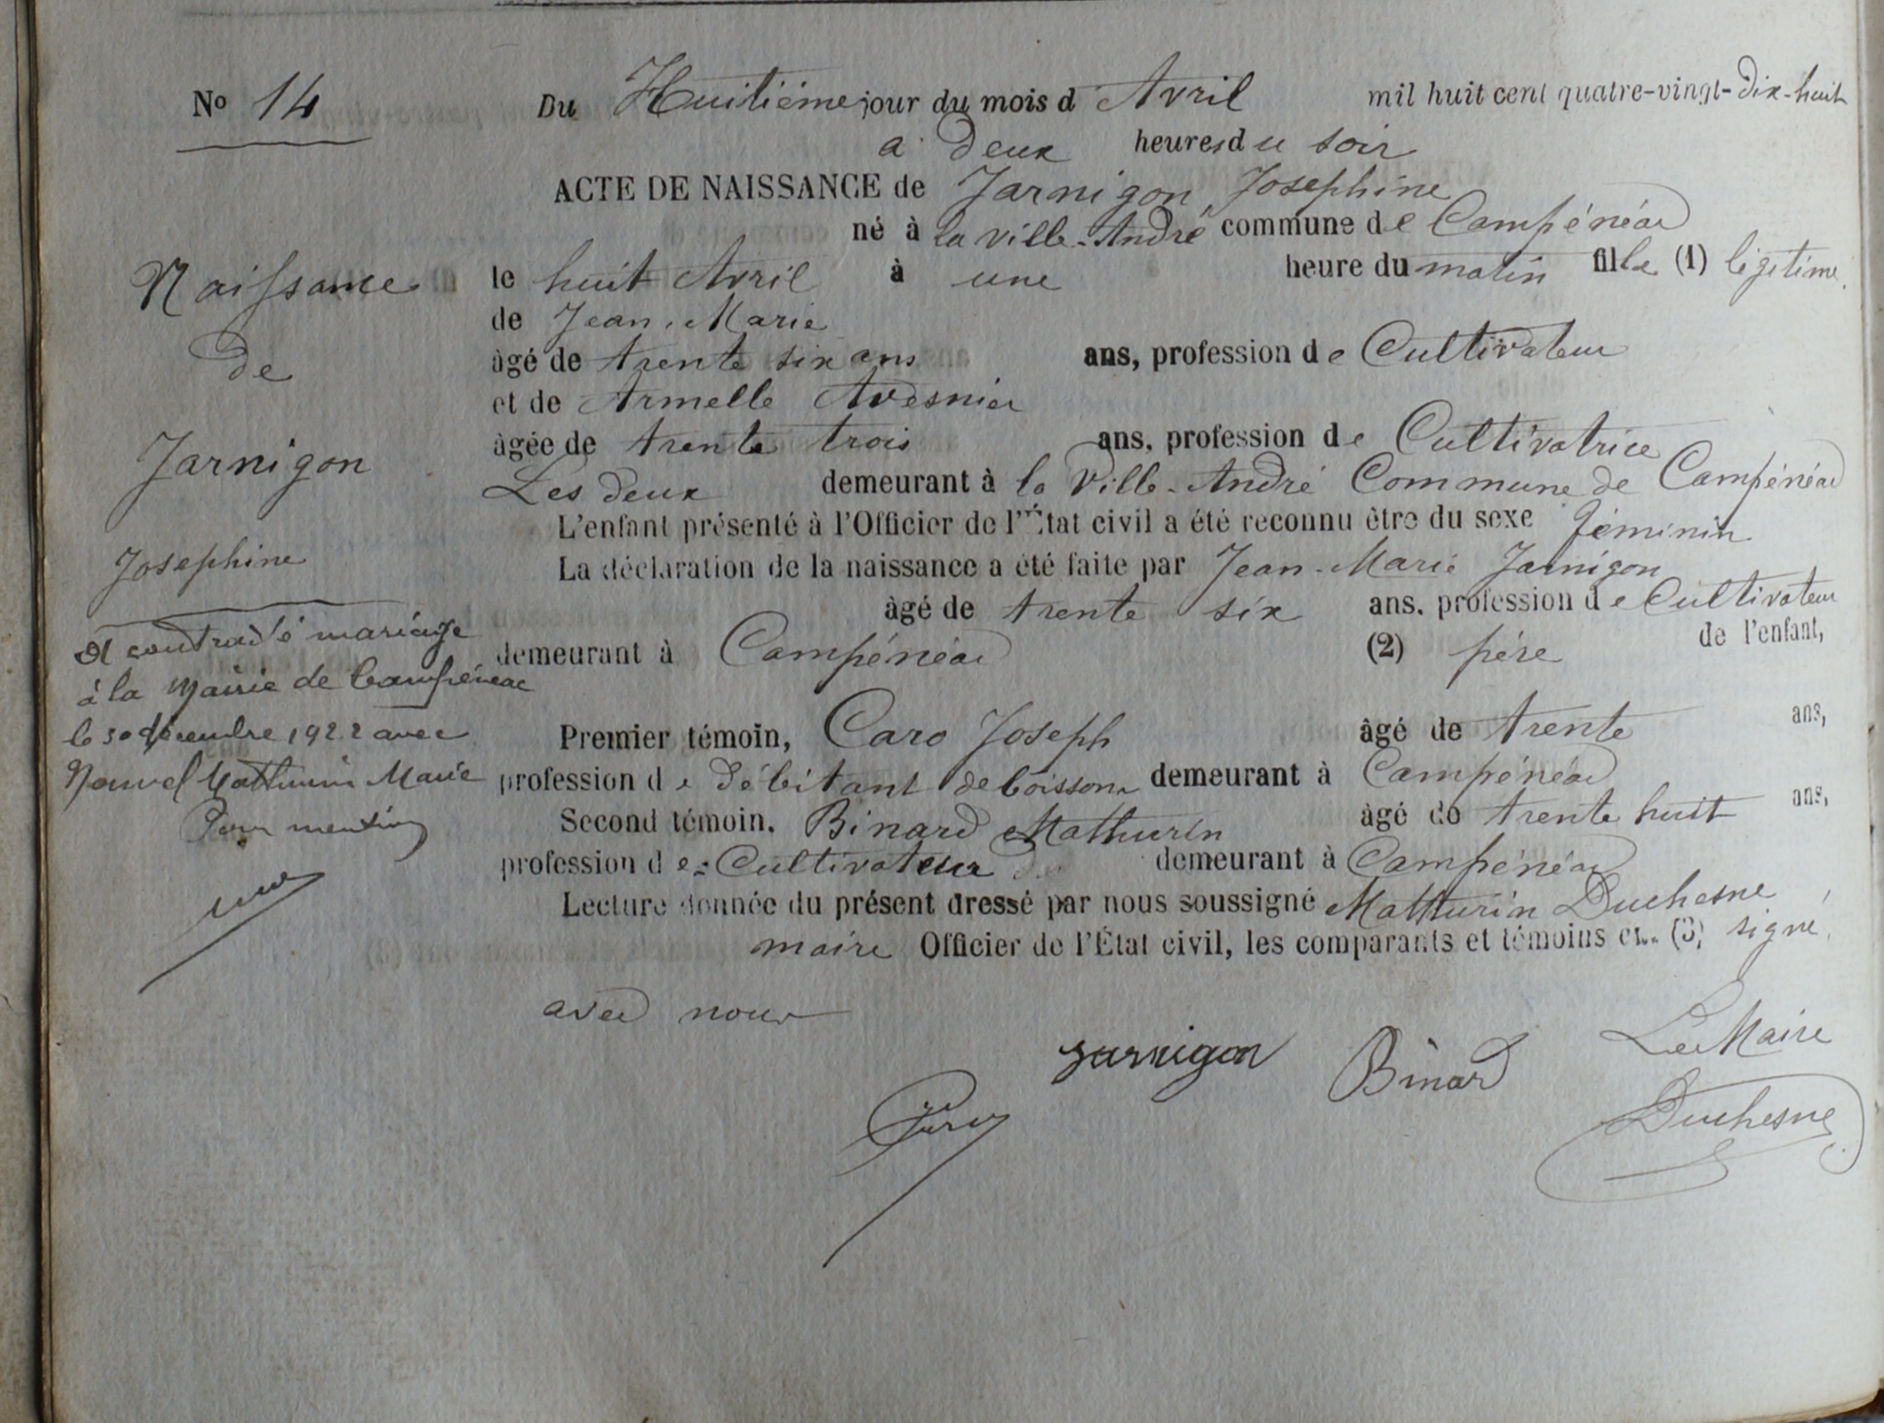 No 14
Du Huitième jour du mois d'Avril mil huit cent quatre-vingt-dix-huit
à deux heures du soir
ACTE DE NAISSANCE de Jarnigon, Josephine
né à la ville-André commune de Campénéac
le huit Avril à une heure du matin fille (1) légitime
de Jean-Marie
âgé de trente six ans ans, profession de Cultivateur
et de Armelle Avesnier
âgée de trente trois ans, profession de Cultivatrice
Les deux demeurant à la Ville-André Commune de Campénéac
L'enfant présenté à l'Officier de l'État civil a été reconnu être du sexe féminin
La déclaration de la naissance a été faite par Jean-Marie Jarnigon
âgé de trente six ans, profession de Cultivateur
demeurant à Campénéac (2) père de l'enfant,
Premier témoin, Caro Joseph âgé de trente ans,
profession de débitant de boissons demeurant à Campénéac
Second témoin, Binard Mathurin âgé de trente huit ans,
profession de Cultivateur demeurant à Campénéac
Lecture donnée du présent dressé par nous soussigné Mathurin Duchesne
maire Officier de l'État civil, les comparants et témoins ont (3) signé
avec nous
Jarnigon Binard Le Maire
Duchesne
Naissance
de
Jarnigon
Josephine
A contracté mariage
à la Mairie de Campénéac
le 30 décembre 1922 avec
Nouvel Mathurin Marie
Pour mention